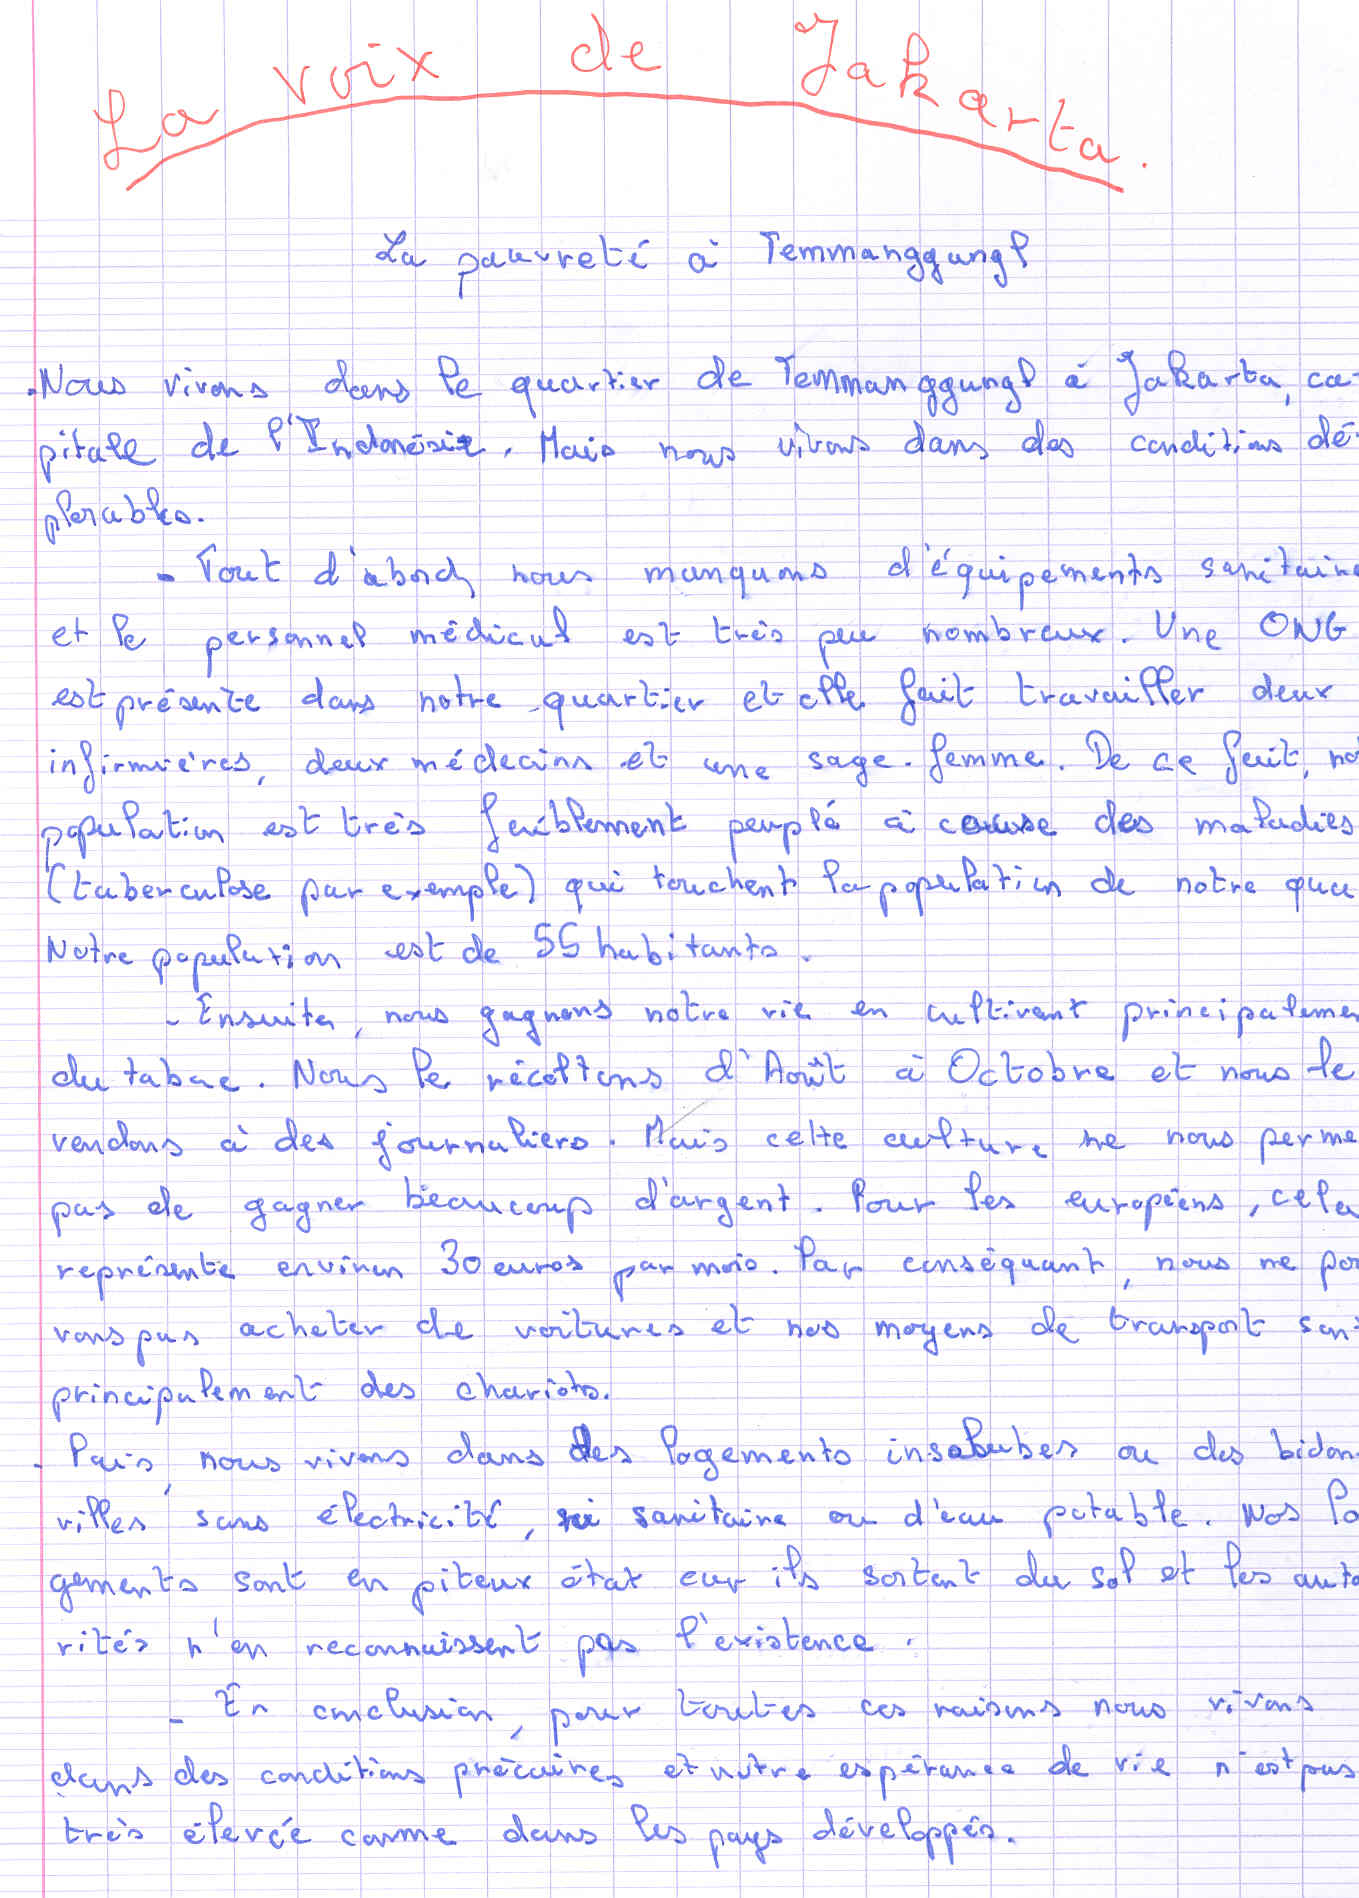 La voix de Jakarta.
La pauvreté à Temmanggungl
- Nous vivons dans le quartier de Temmanggungl à Jakarta, ca-
pitale de l'Indonésie. Mais nous vivons dans des conditions dé-
plorables.
- Tout d'abord, nous manquons d'équipements sanitaire
et le personnel médical est très peu nombreux. Une ONG
est présente dans notre quartier et elle fait travailler deux
infirmières, deux médecins et une sage-femme. De ce fait, no
population est très faiblement peuplé à cause des maladies
(tuberculose par exemple) qui touchent la population de notre qua
Notre population est de 55 habitants.
- Ensuite, nous gagnons notre vie en cultivant principaleme
du tabac. Nous le récoltons d'Août à Octobre et nous le
vendons à des journaliers. Mais cette culture ne nous perme
pas de gagner beaucoup d'argent. Pour les européens, cela
représente environ 30 euros par mois. Par conséquant, nous ne pou
vons pas acheter de voitures et nos moyens de transport sont
principalement des chariots.
- Puis, nous vivons dans des logements insalubes ou des bidon
villes sans électricité, ni sanitaire ou d'eau potable. Nos lo
gements sont en piteux état car ils sortent du sol et les auto
rités n'en reconnaissent pas l'existence.
- En conclusion, pour toutes ces raisons nous vivons
dans des conditions précaires et notre espérance de vie n'est pas
très élevée comme dans les pays développés.